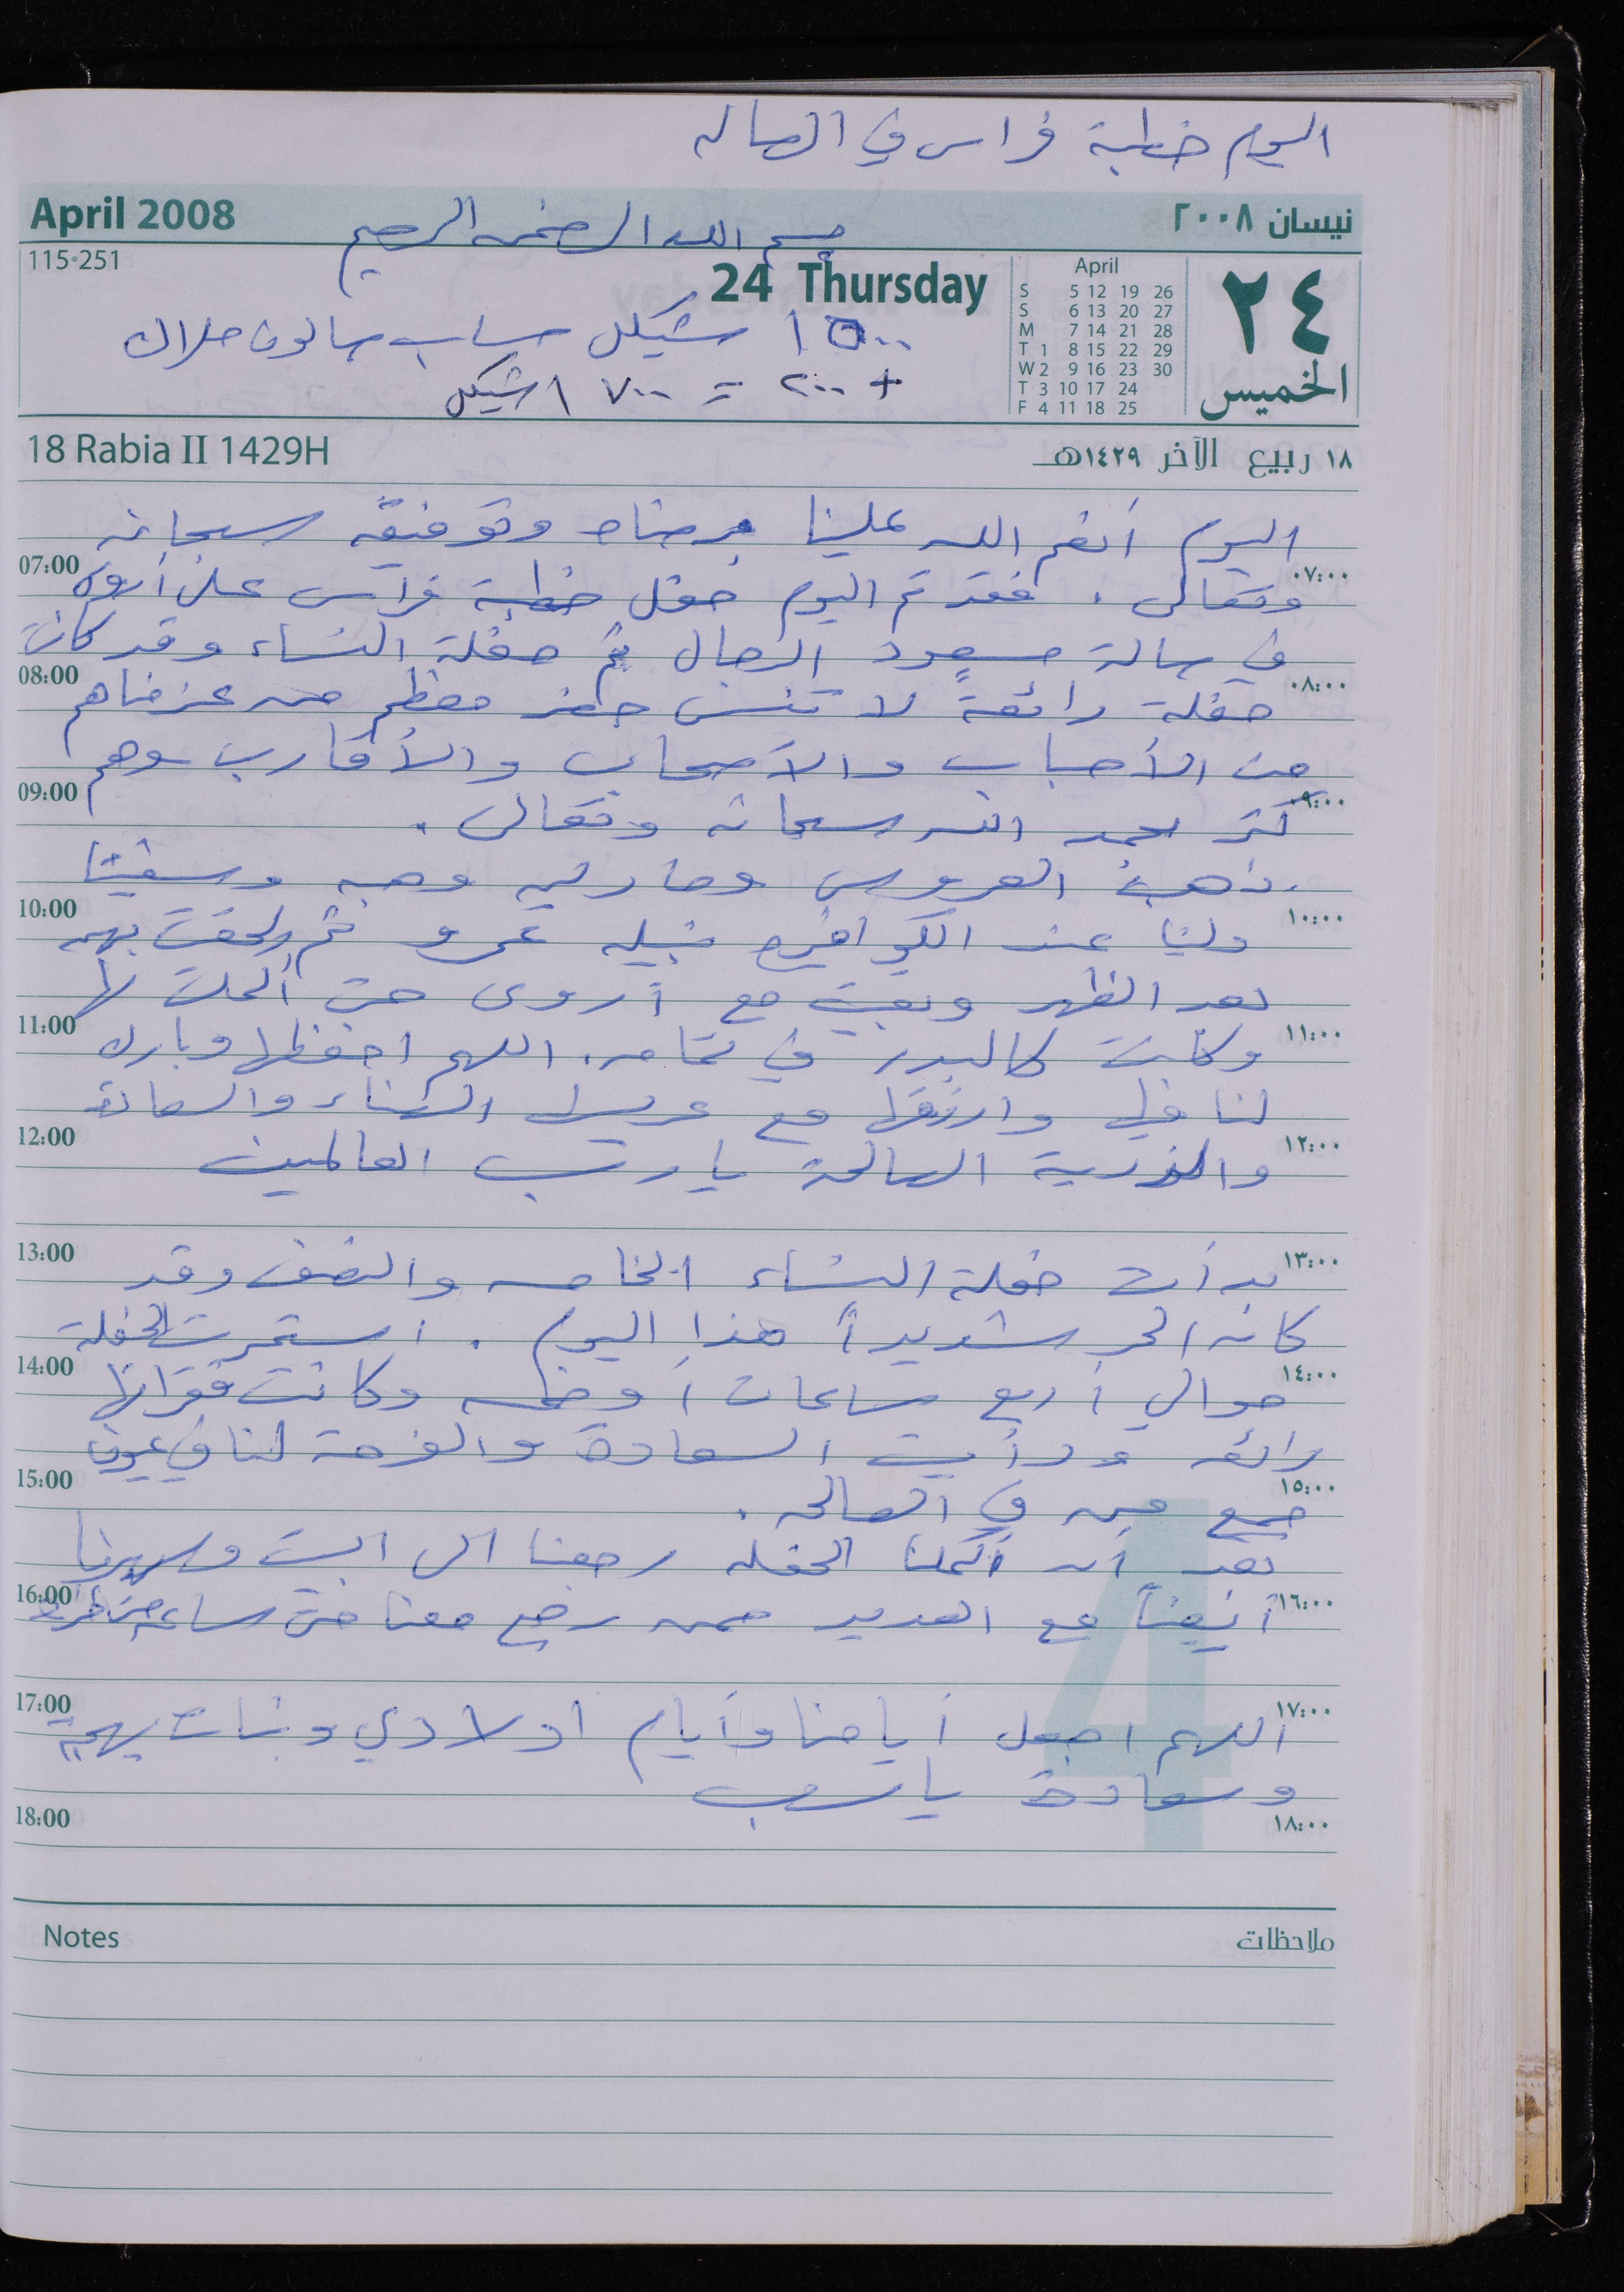 اليوم خطبة فراس في الصاله
April 2008
نيسان ٢٠٠٨
بسم الله الرحمن الرحيم
115-251
24 Thursday
April
S 5 12 19 26
S 6 13 20 27
M 7 14 21 28
T 1 8 15 22 29
W 2 9 16 23 30
T 3 10 17 24
F 4 11 18 25
٢٤
الخميس
١٥٠٠ شيكل حساب صالون
+ ٢٠٠ = ١٧٠٠ شيكل
18 Rabia II 1429H
١٨ ربيع الآخر ١٤٢٩هـ
اليوم أنعم الله علينا برضاه وتوفيقه سبحانه
07:00 ٠٧:٠٠
وتعالى. فقد تم اليوم حفل خطبة فراس على أروى
في صالة مسعود الرجال ثم حفلة النساء وقد كانت
08:00 ٠٨:٠٠
حفلة رائعة لا تنسى حضر معظم من عزمناهم
من الأحباب والأصحاب والأقارب وهم
09:00 ٠٩:٠٠
كثر بحمد الله سبحانه وتعالى.
ذهبت العروس
10:00 ١٠:٠٠
عند الكوافيره نبيله عمرو ثم لحقت بهم
بعد الظهر وبقيت مع أروى حتى أكملت لها
11:00 ١١:٠٠
وكانت كالبدر في تمامه. اللهم احفظها وبارك
لنا فيها وارزقها مع عريسها الهناء والسعادة
12:00 ١٢:٠٠
والذرية الصالحة يا رب العالمين
13:00 ١٣:٠٠
بدأت حفلة النساء الخامسه والنصف وقد
كان الحر شديداً هذا اليوم. استمرت الحفلة
14:00 ١٤:٠٠
حوالي أربع ساعات أو خمسه وكانت فقراتها
رائعه ورأيت السعادة والفرحة لنا في عيون
15:00 ١٥:٠٠
جميع من في الصاله.
بعد أن أكملنا الحفله رجعنا الى البيت وسهرنا
16:00 ١٦:٠٠
أيضاً مع العديد ممن رجع معنا حتى ساعه متأخرة
17:00 ١٧:٠٠
اللهم اجعل أيامنا وأيام اولادي وبناتي بهجة
وسعادة يا رب
18:00 ١٨:٠٠
4
Notes
ملاحظات